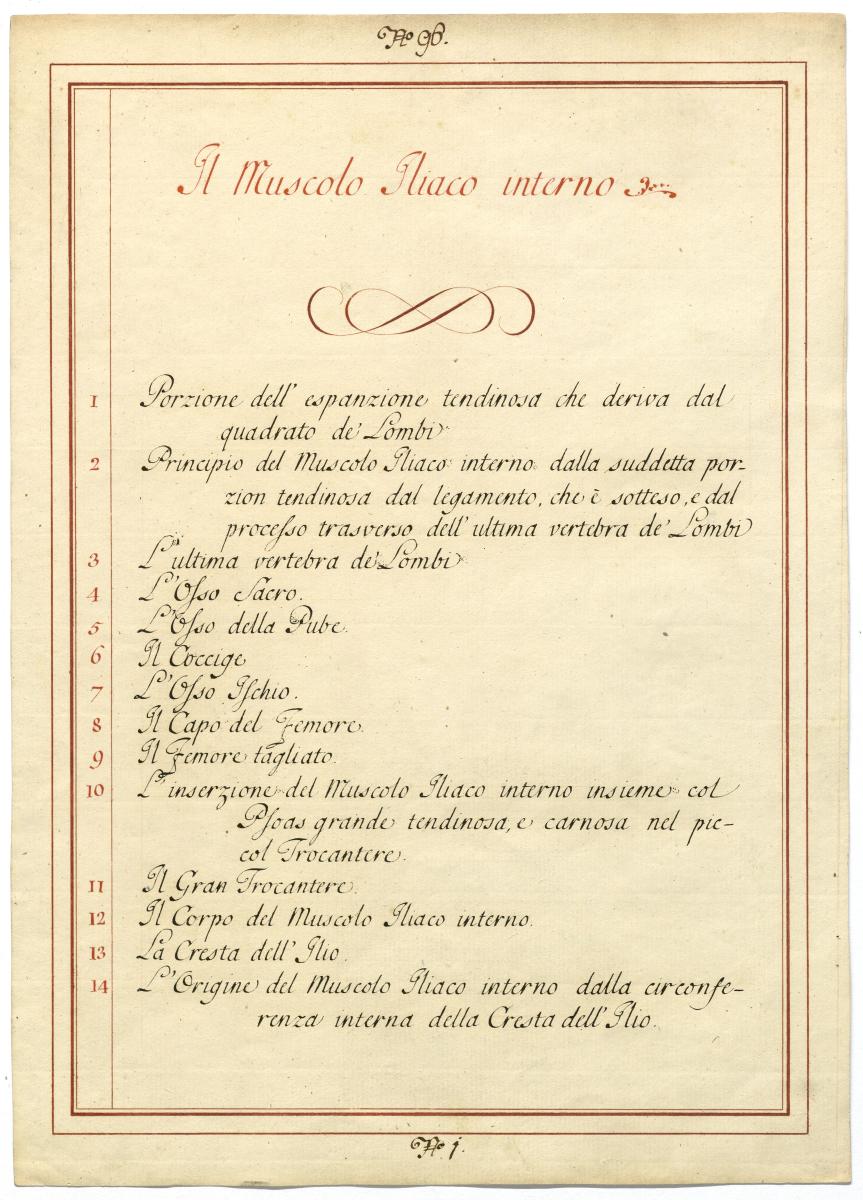 No 96.
Il Muscolo Iliaco interno
1 Porzione dell' espanzione tendinosa che deriva dal
quadrato de' Lombi
2 Principio del Muscolo Iliaco interno dalla suddetta por-
zion tendinosa dal legamento, che è sotteso, e dal
proceſso trasverso dell' ultima vertebra de' Lombi
3 L' ultima vertebra de' Lombi
4 L' Oſso Sacro.
5 L' Oſso della Pube.
6 Il Coccige
7 L' Oſso Iſchio.
8 Il Capo del Femore.
9 Il Femore tagliato.
10 L' inserzione del Muscolo Iliaco interno insieme col
Pſoas grande tendinosa, e carnosa nel pic-
col Trocantere.
11 Il Gran Trocantere.
12 Il Corpo del Muscolo Iliaco interno.
13 La Cresta dell' Ilio.
14 L' Origine del Muscolo Iliaco interno dalla circonfe-
renza interna della Cresta dell' Ilio.
No 1.